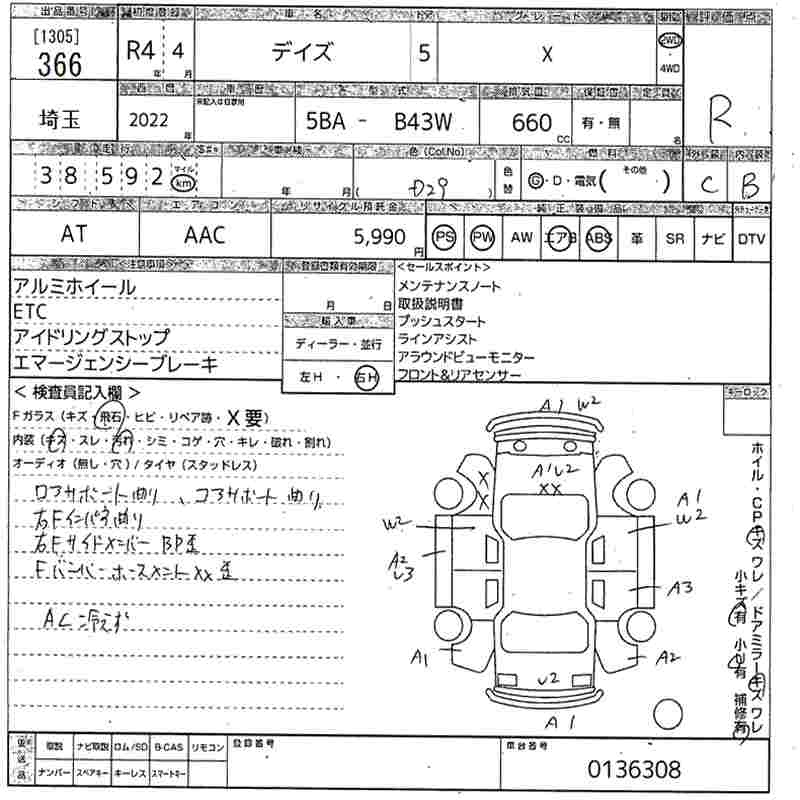 出品番号 初度登録 車名 ドア グレード 駆動 評価点
[1305]
366
R4 年 4 月
デイズ
5
X
2WD
・
4WD
R
埼玉
西暦
2022 年
車歴
※記入は自家用
型式
5BA - B43W
排気量
660 CC
保証書
有・無
定員
名
走行
38,592
マイル
km
車検
年 月
色 (Col.No)
( D29 )
色替
燃料
G・D・電気 ( その他 )
外装 C
内装 B
シフト エアコン リサイクル預託金 純正装備品
AT
AAC
5,990 円
PS PW AW エアB ABS 革 SR ナビ DTV
注意事項
アルミホイール
ETC
アイドリングストップ
エマージェンシーブレーキ
登録書類有効期限
月 日
輸入車
ディーラー・並行
左H・右H
<セールスポイント>
メンテナンスノート
取扱説明書
プッシュスタート
ラインアシスト
アラウンドビューモニター
フロント&リアセンサー
< 検査員記入欄 >
Fガラス (キズ・飛石・ヒビ・リペア跡・X要)
内装 (キズ・スレ・汚れ・シミ・コゲ・穴・キレ・破れ・割れ)
オーディオ (無し・穴) / タイヤ (スタッドレス)
ロアサポート曲り、コアサポート曲り
右Fインパネ曲り
右Fサイドメンバー BP歪
Fバンパーホースメント XX 歪
AC冷えず
キーロック
A1 W2
A1U2
XX
X
X
W2
A2
U3
A1
W2
A3
A1
A2
U2
A1
ホイル・CPキズワレ/ドアミラーキズワレ
小キズ有 小U有 補修有
車送品
車説 ナビ取説 ロム/SD B-CAS リモコン
ナンバー スペアキー キーレス スマートキー
登録番号
車台番号
0136308